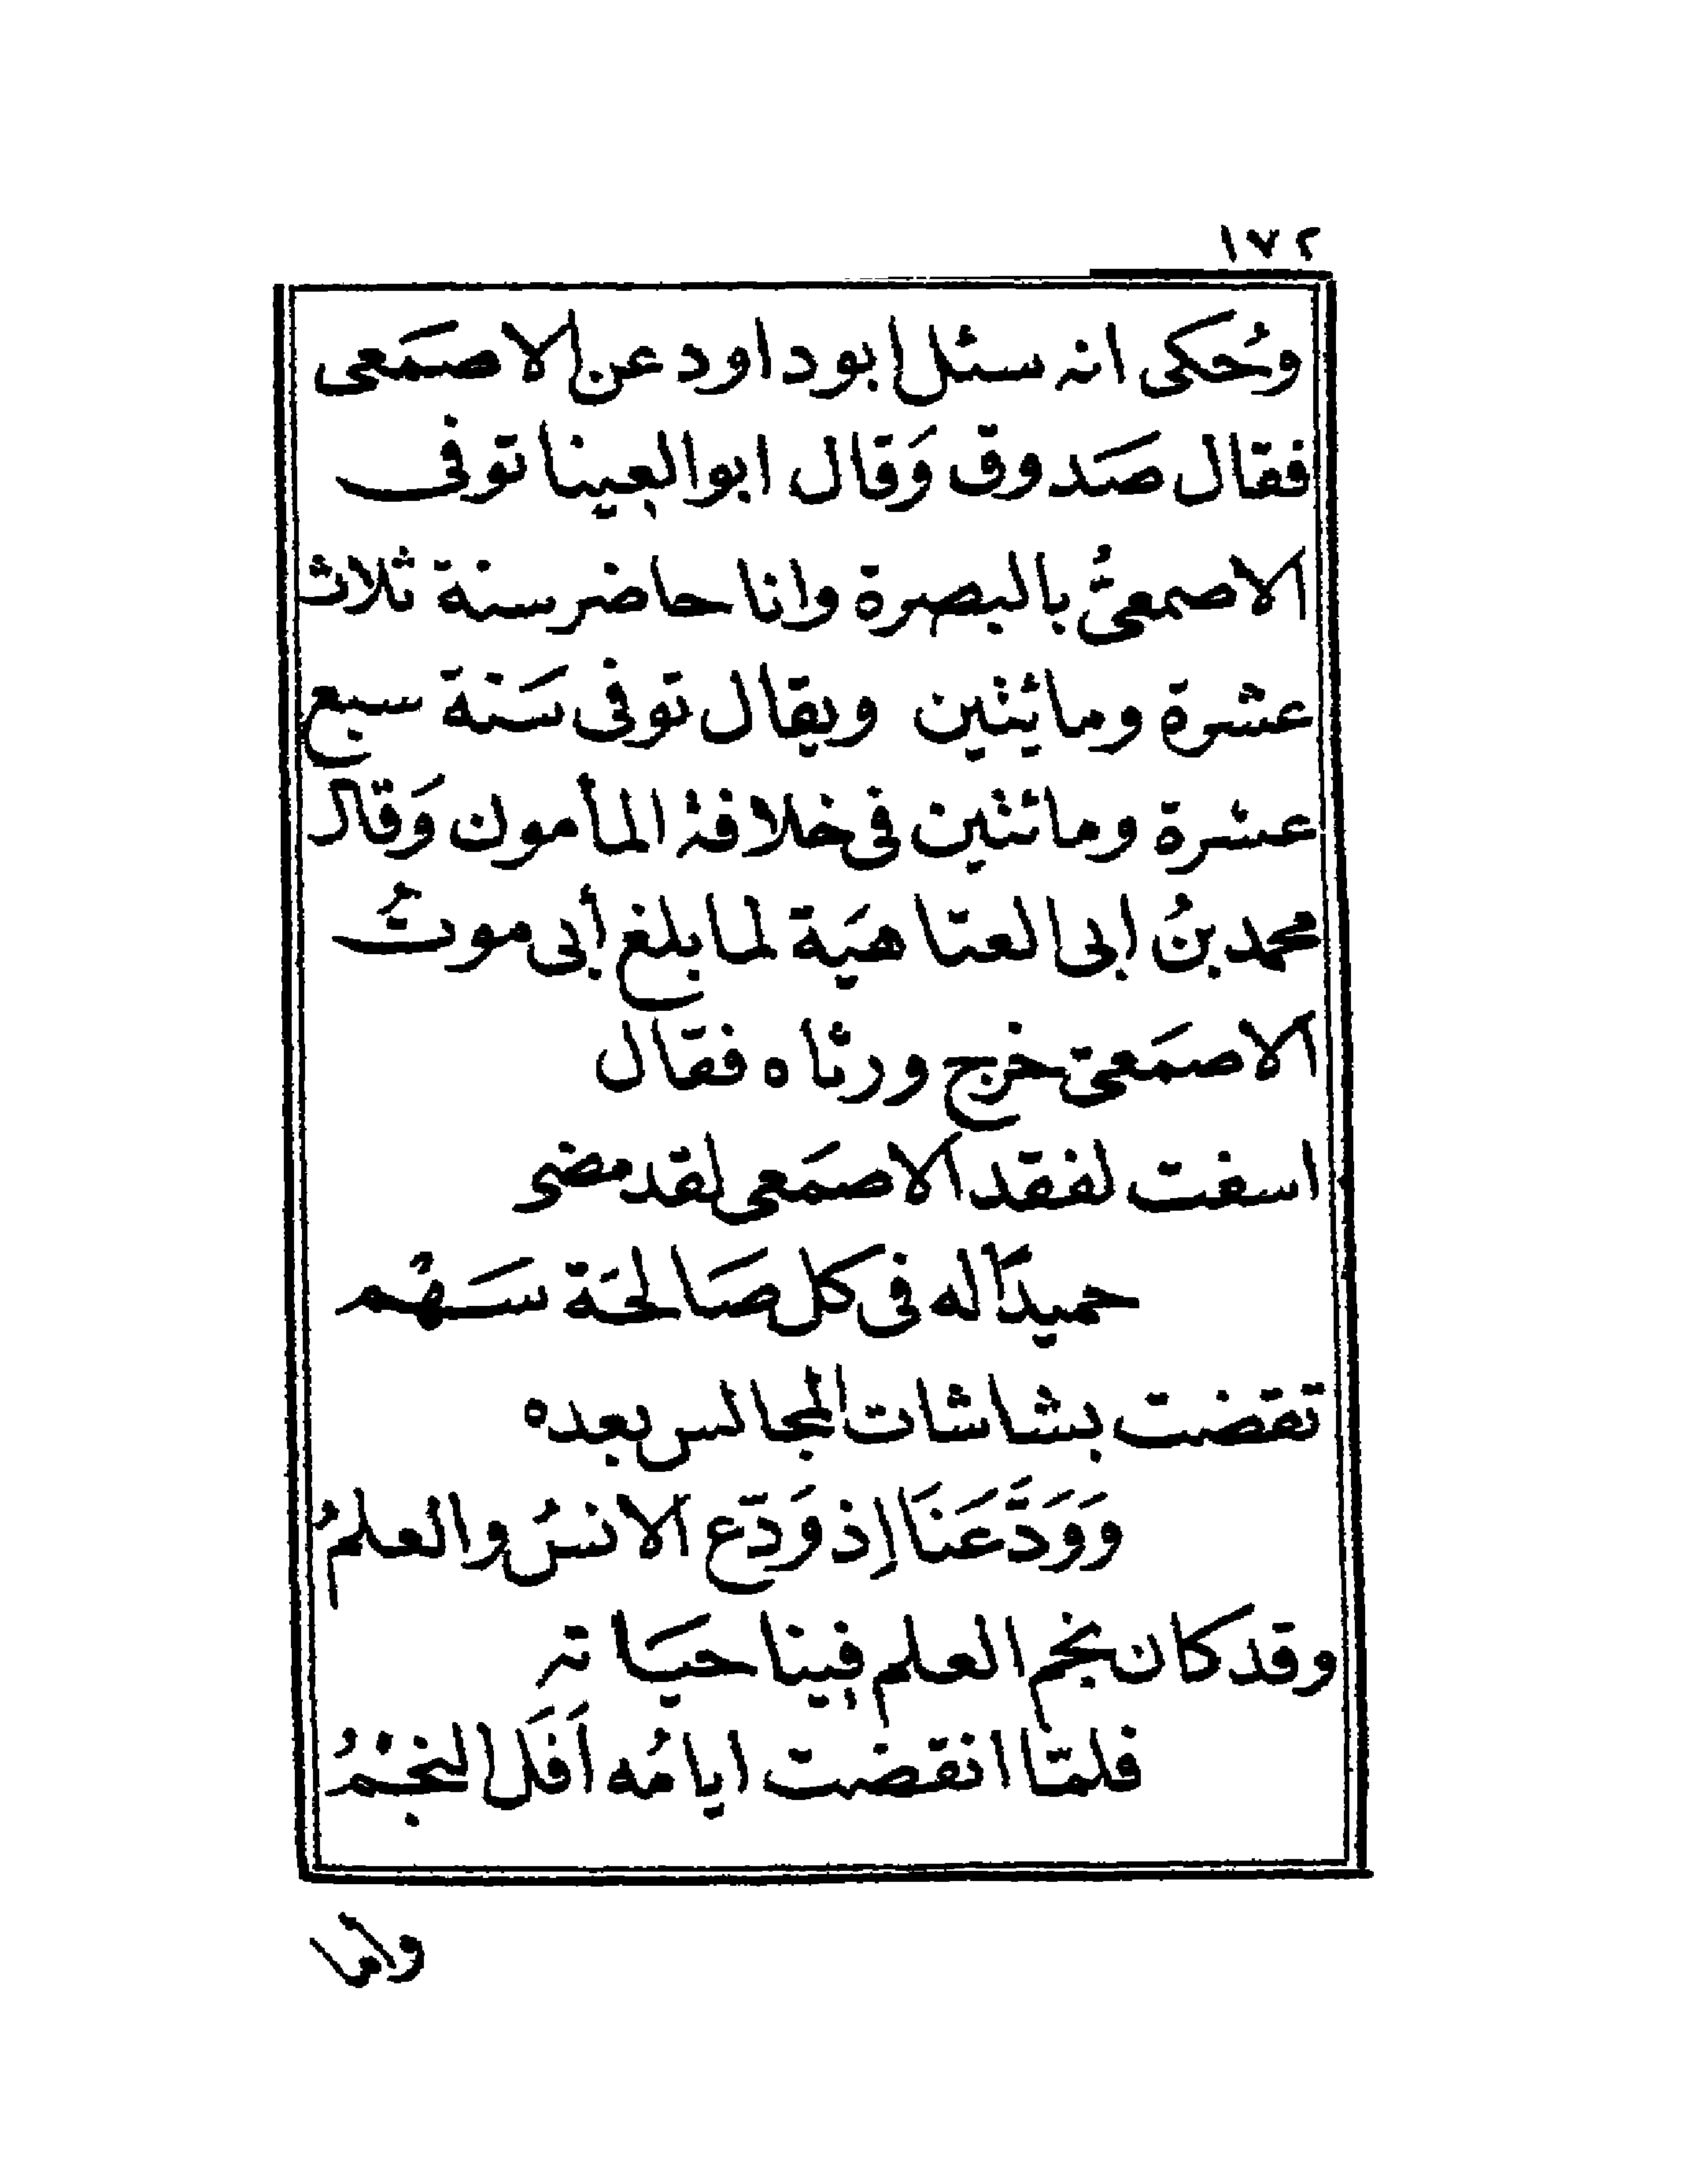 ١٧٢
وحُكى انه سئل ابو داود عن الاصمَعى
فقال صَدوق وَقال ابو العينا توفى
الاصمعىُّ بالبصرة وانا حاضر سنة ثلاث
عشرة ومائيثين ويقال توفى سَنة سبع
عشرة ومائتثين فى خلافة المأمون وَقال
محمد بنُ ابى العتاهيَة لما بلغ أبى موتُ
الاصمَعىّ خرج ورثاه فقال
اسفت لفقد الاصمَعى لقد مضى
حميدًا له فى كل صَالحَة سَهْم
تقضت بشاشات المجالس بعده
وَوَدَّعَنَا إِذ وَدّع الانسُ والعلمُ
وقد كان نجم العلم فينا حيَاته
فلمّا انقضت ايامُه اَفَل النجْمُ
واما